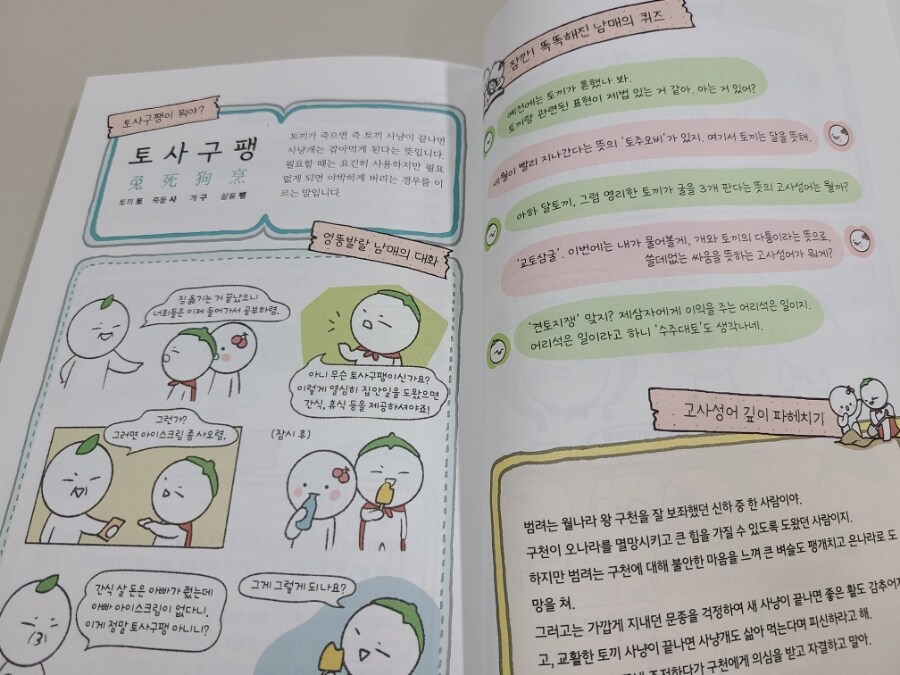 토사구팽이 뭐야?
토사구팽
兎死狗烹
토끼 토 죽을 사 개 구 삶을 팽
토끼가 죽으면 즉 토끼 사냥이 끝나면
사냥개는 잡아먹게 된다는 뜻입니다.
필요할 때는 요긴히 사용하지만 필요
없게 되면 야박하게 버리는 경우를 이
르는 말입니다.
엉뚱발랄 남매의 대화
짐 옮기는 거 끝났으니
너희들은 이제 들어가서 공부하렴.
아니 무슨 토사구팽이신가요?
이렇게 열심히 집안일을 도왔으면
간식, 휴식 등을 제공하셔야죠!
그런가?
그러면 아이스크림 좀 사오렴.
(잠시 후)
간식 살 돈은 아빠가 줬는데
아빠 아이스크림이 없다니.
이게 정말 토사구팽 아니니?
그게 그렇게 되나요?
잠깐! 똑똑해진 남매의 퀴즈
예전에는 토끼가 흔했나 봐.
토끼랑 관련된 표현이 제법 있는 거 같아. 아는 거 있어?
세월이 빨리 지나간다는 뜻의 '토주오비'가 있지. 여기서 토끼는 달을 뜻해.
아하 달토끼, 그럼 영리한 토끼가 굴을 3개 판다는 뜻의 고사성어는 뭘까?
'교토삼굴'. 이번에는 내가 물어볼게, 개와 토끼의 다툼이라는 뜻으로,
쓸데없는 싸움을 뜻하는 고사성어가 뭐게?
'견토지쟁' 맞지? 제삼자에게 이익을 주는 어리석은 일이지.
어리석은 일이라고 하니 '수주대토'도 생각나네.
고사성어 깊이 파헤치기
범려는 월나라 왕 구천을 잘 보좌했던 신하 중 한 사람이야.
구천이 오나라를 멸망시키고 큰 힘을 가질 수 있도록 도왔던 사람이지.
하지만 범려는 구천에 대해 불안한 마음을 느껴 큰 벼슬도 팽개치고 은나라로 도
망을 쳐.
그러고는 가깝게 지내던 문종을 걱정하여 새 사냥이 끝나면 좋은 활도 감추어지
고, 교활한 토끼 사냥이 끝나면 사냥개도 삶아 먹는다며 피신하라고 해.
주저하다가 구천에게 의심을 받고 자결하고 말아.